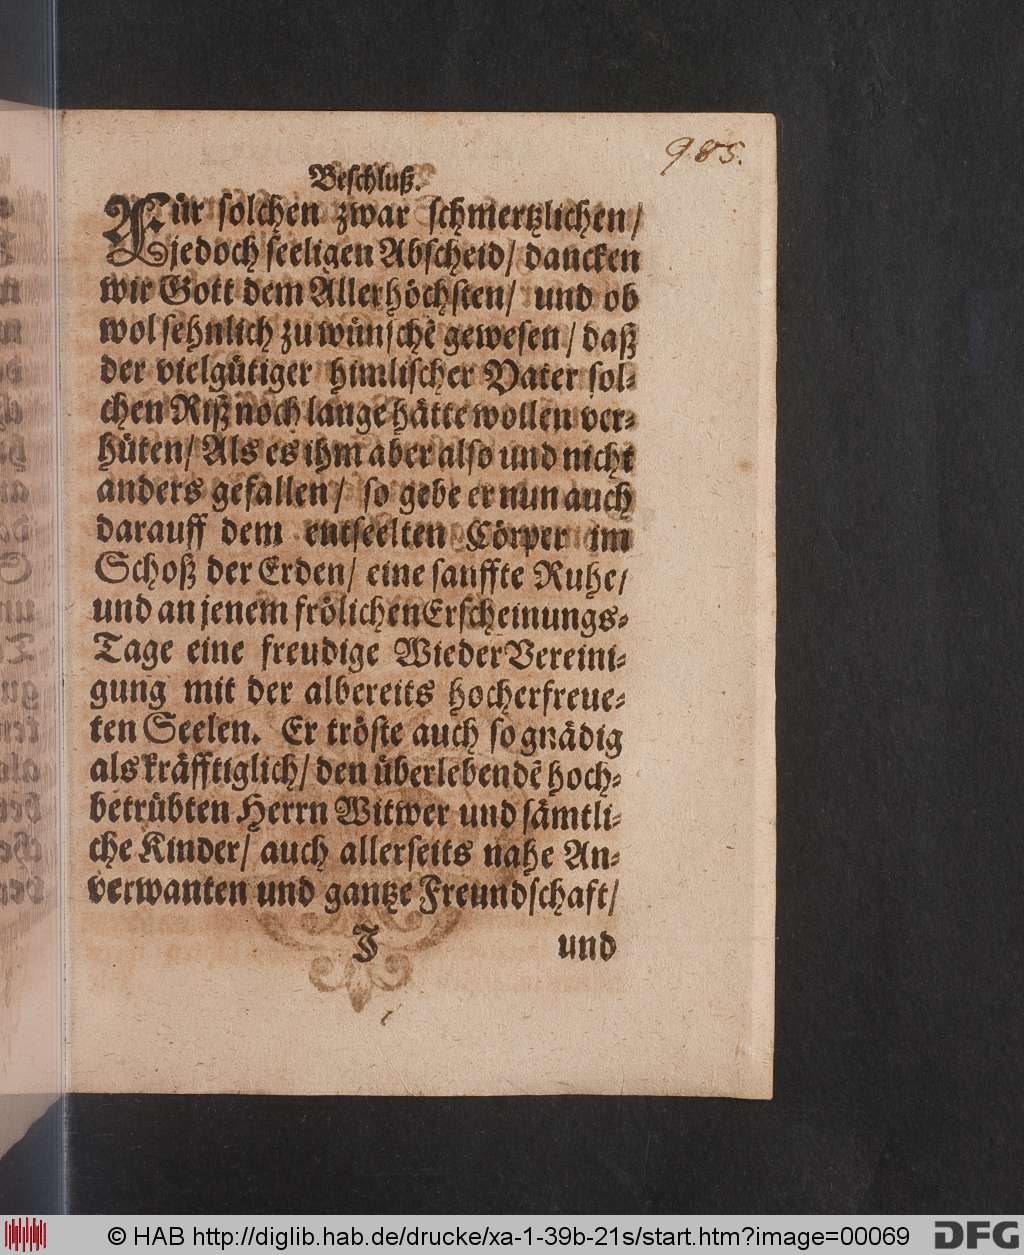 985.
Beschluß.
Für solchen zwar schmertzlichen /
jedoch seeligen Abscheid / dancken
wir Gott dem Allerhöchsten / und ob
wol sehnlich zu wünschẽ gewesen / daß
der vielgütiger himlischer Vater sol-
chen Riß noch lange hätte wollen ver-
hüten / Als es ihm aber also und nicht
anders gefallen / so gebe er nun auch
darauff dem entseelten Cörper im
Schoß der Erden / eine sanffte Ruhe /
und an jenem frölichen Erscheinungs-
Tage eine freudige WiederVereini-
gung mit der albereits hocherfreue-
ten Seelen. Er tröste auch so gnädig
als kräfftiglich / den überlebendẽ hoch-
betrübten Herrn Witwer und sämtli-
che Kinder / auch allerseits nahe An-
verwanten und gantze Freundschaft /
J und
© HAB http://diglib.hab.de/drucke/xa-1-39b-21s/start.htm?image=00069 DFG